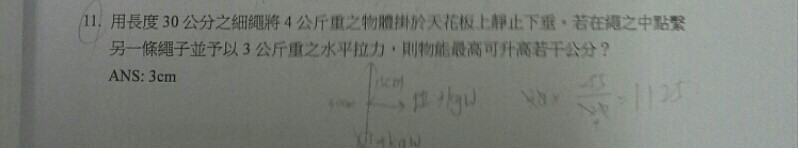 11. 用長度 30 公分之細繩將 4 公斤重之物體掛於天花板上靜止下垂。若在繩之中點繫
另一條繩子並予以 3 公斤重之水平拉力，則物能最高可升高若干公分？
ANS: 3cm
15cm
= 1125